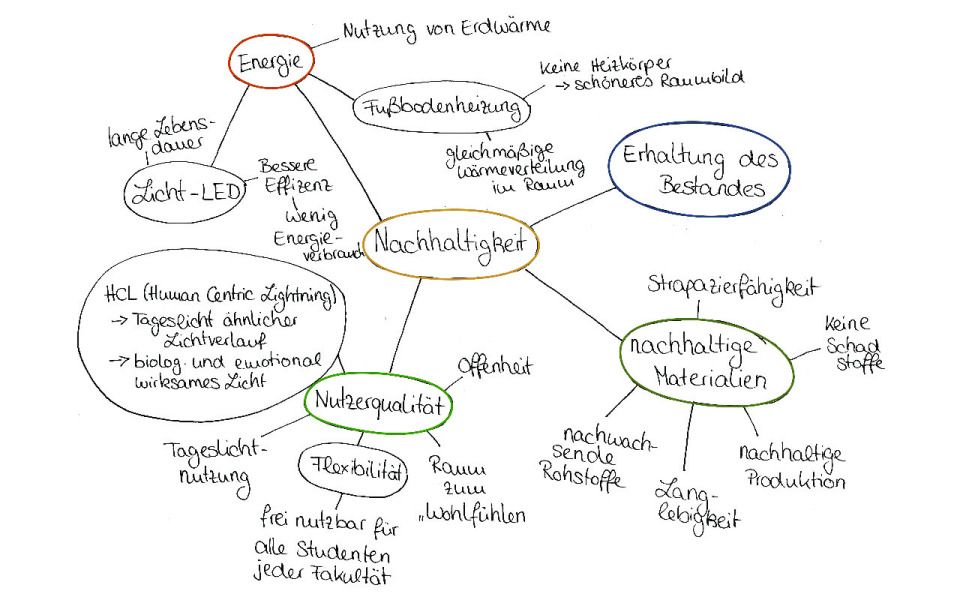 Nutzung von Erdwärme
Energie
Keine Heizkörper
→ schöneres Raumbild
Fußbodenheizung
lange Lebens-
dauer
gleichmäßige
Wärmeverteilung
im Raum
Erhaltung des
Bestandes
Licht-LED
Bessere
Effizenz
wenig
Energie-
verbrauch
Nachhaltigkeit
HCL (Human Centric Lightning)
→ Tageslicht ähnlicher
Lichtverlauf
→ biolog. und emotional
wirksames Licht
Strapazierfähigkeit
Keine
Schad
stoffe
nachhaltige
Materialien
Offenheit
Nutzerqualität
Tageslicht-
nutzung
Flexibilität
Raum
zum
„Wohlfühlen
frei nutzbar für
alle Studenten
jeder Fakultät
nachwach-
sende
Rohstoffe
Lang-
lebigkeit
nachhaltige
Produktion